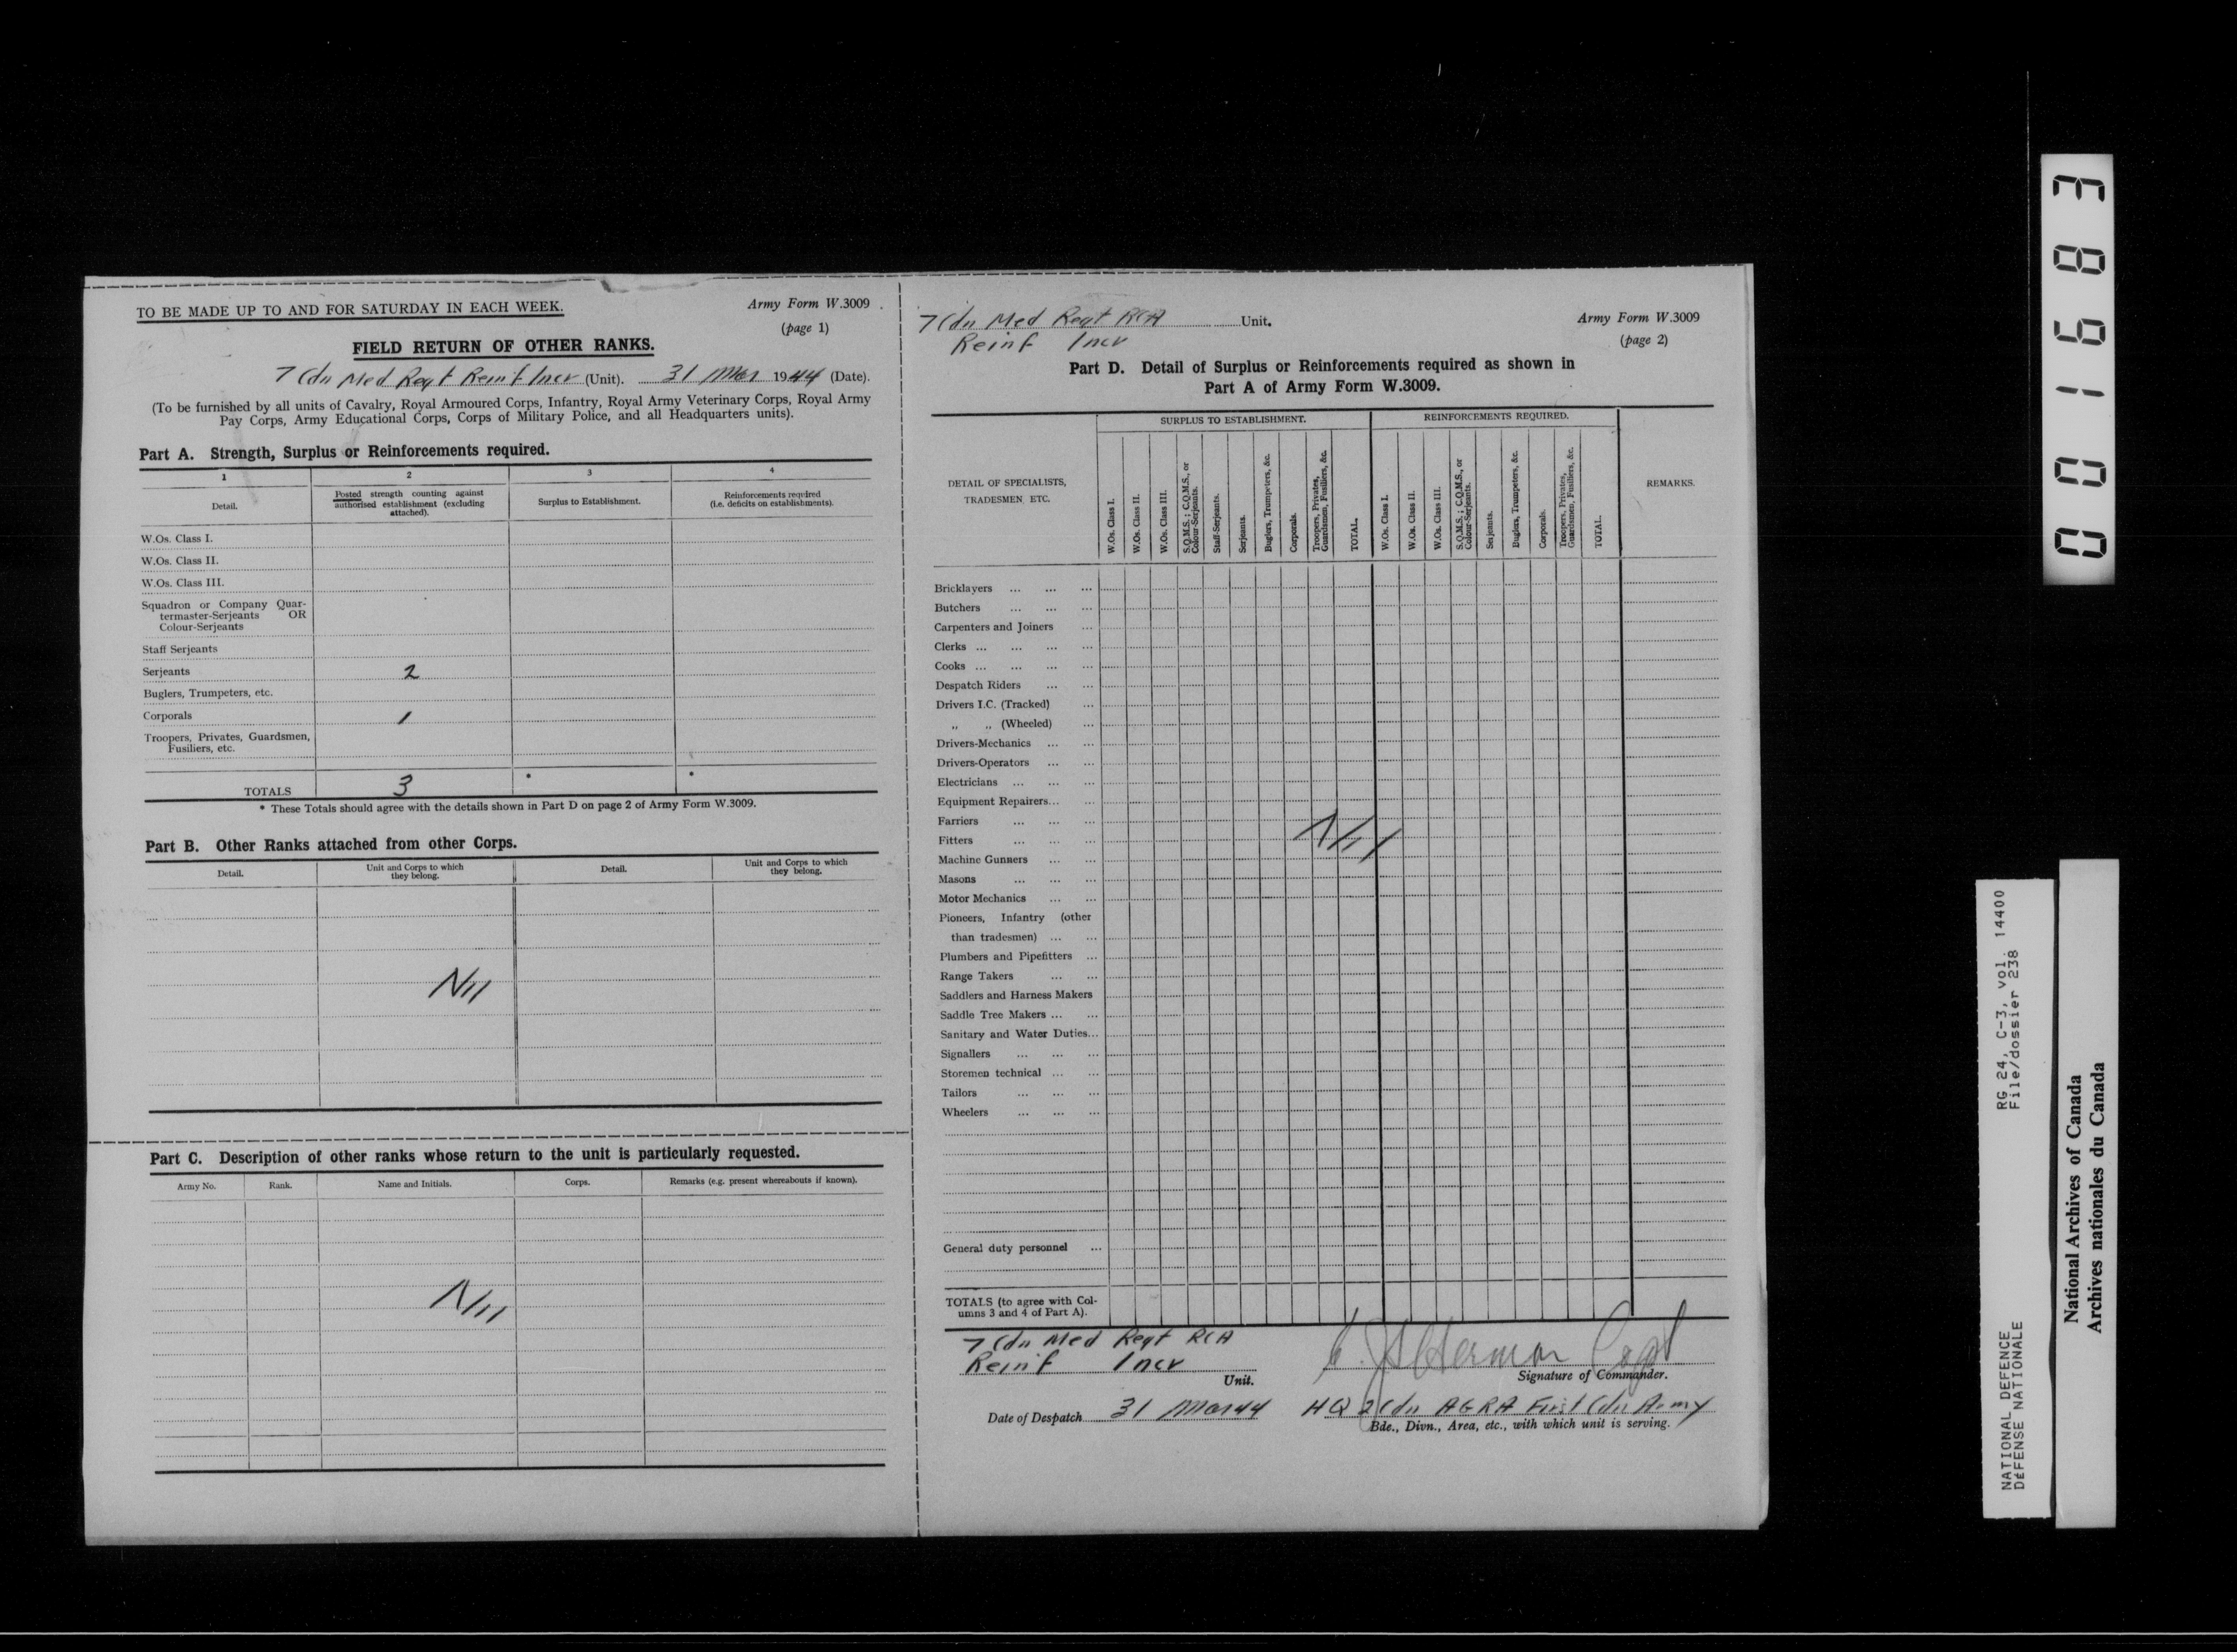 TO BE MADE UP TO AND FOR SATURDAY IN EACH WEEK.
Army Form W.3009
(page 1)
FIELD RETURN OF OTHER RANKS.
7 Cdn Med Regt Reinf Incr (Unit). 31 Mar 1944 (Date).
(To be furnished by all units of Cavalry, Royal Armoured Corps, Infantry, Royal Army Veterinary Corps, Royal Army
Pay Corps, Army Educational Corps, Corps of Military Police, and all Headquarters units).
Part A. Strength, Surplus or Reinforcements required.
1 2 3 4
Detail.
Posted strength counting against
authorised establishment (excluding
attached).
Surplus to Establishment.
Reinforcements required
(i.e. deficits on establishments).
W.Os. Class I.
W.Os. Class II.
W.Os. Class III.
Squadron or Company Quar-
termaster-Serjeants OR
Colour-Serjeants
Staff Serjeants
Serjeants 2
Buglers, Trumpeters, etc.
Corporals 1
Troopers, Privates, Guardsmen,
Fusiliers, etc.
TOTALS 3 * *
* These Totals should agree with the details shown in Part D on page 2 of Army Form W.3009.
Part B. Other Ranks attached from other Corps.
Detail.
Unit and Corps to which
they belong.
Detail.
Unit and Corps to which
they belong.
Nil
Part C. Description of other ranks whose return to the unit is particularly requested.
Army No. Rank. Name and Initials. Corps. Remarks (e.g. present whereabouts if known).
Nil
7 Cdn Med Regt RCA Unit.
Reinf Incr
Army Form W.3009
(page 2)
Part D. Detail of Surplus or Reinforcements required as shown in
Part A of Army Form W.3009.
DETAIL OF SPECIALISTS,
TRADESMEN, ETC.
SURPLUS TO ESTABLISHMENT.
W.Os. Class I.
W.Os. Class II.
W.Os. Class III.
S.Q.M.S.; C.Q.M.S., or
Colour-Serjeants.
Staff-Serjeants.
Serjeants.
Buglers, Trumpeters, &c.
Corporals.
Troopers, Privates,
Guardsmen, Fusiliers, &c.
TOTAL.
REINFORCEMENTS REQUIRED.
W.Os. Class I.
W.Os. Class II.
W.Os. Class III.
S.Q.M.S.; C.Q.M.S., or
Colour-Serjeants.
Serjeants.
Buglers, Trumpeters, &c.
Corporals.
Troopers, Privates,
Guardsmen, Fusiliers, &c.
TOTAL.
REMARKS.
Bricklayers ... ... ...
Butchers ... ... ...
Carpenters and Joiners ...
Clerks ... ... ... ...
Cooks ... ... ... ...
Despatch Riders ... ...
Drivers I.C. (Tracked) ...
„ „ (Wheeled) ...
Drivers-Mechanics ... ...
Drivers-Operators ... ...
Electricians ... ... ...
Equipment Repairers... ...
Farriers ... ... ...
Nil
Fitters ... ... ...
Machine Gunners ... ...
Masons ... ... ...
Motor Mechanics ... ...
Pioneers, Infantry (other
than tradesmen) ... ...
Plumbers and Pipefitters ...
Range Takers ... ...
Saddlers and Harness Makers
Saddle Tree Makers ... ...
Sanitary and Water Duties...
Signallers ... ... ...
Storemen technical ... ...
Tailors ... ... ...
Wheelers ... ... ...
General duty personnel ...
TOTALS (to agree with Col-
umns 3 and 4 of Part A).
7 Cdn Med Regt RCA
Reinf Incr
Unit.
Capt
Signature of Commander.
Date of Despatch 31 Mar 44
HQ 2 Cdn AGRA First Cdn Army
Bde., Divn., Area, etc., with which unit is serving.
001683
NATIONAL DEFENCE RG 24, C-3, vol. 14400
DÉFENSE NATIONALE File/dossier 238
National Archives of Canada
Archives nationales du Canada